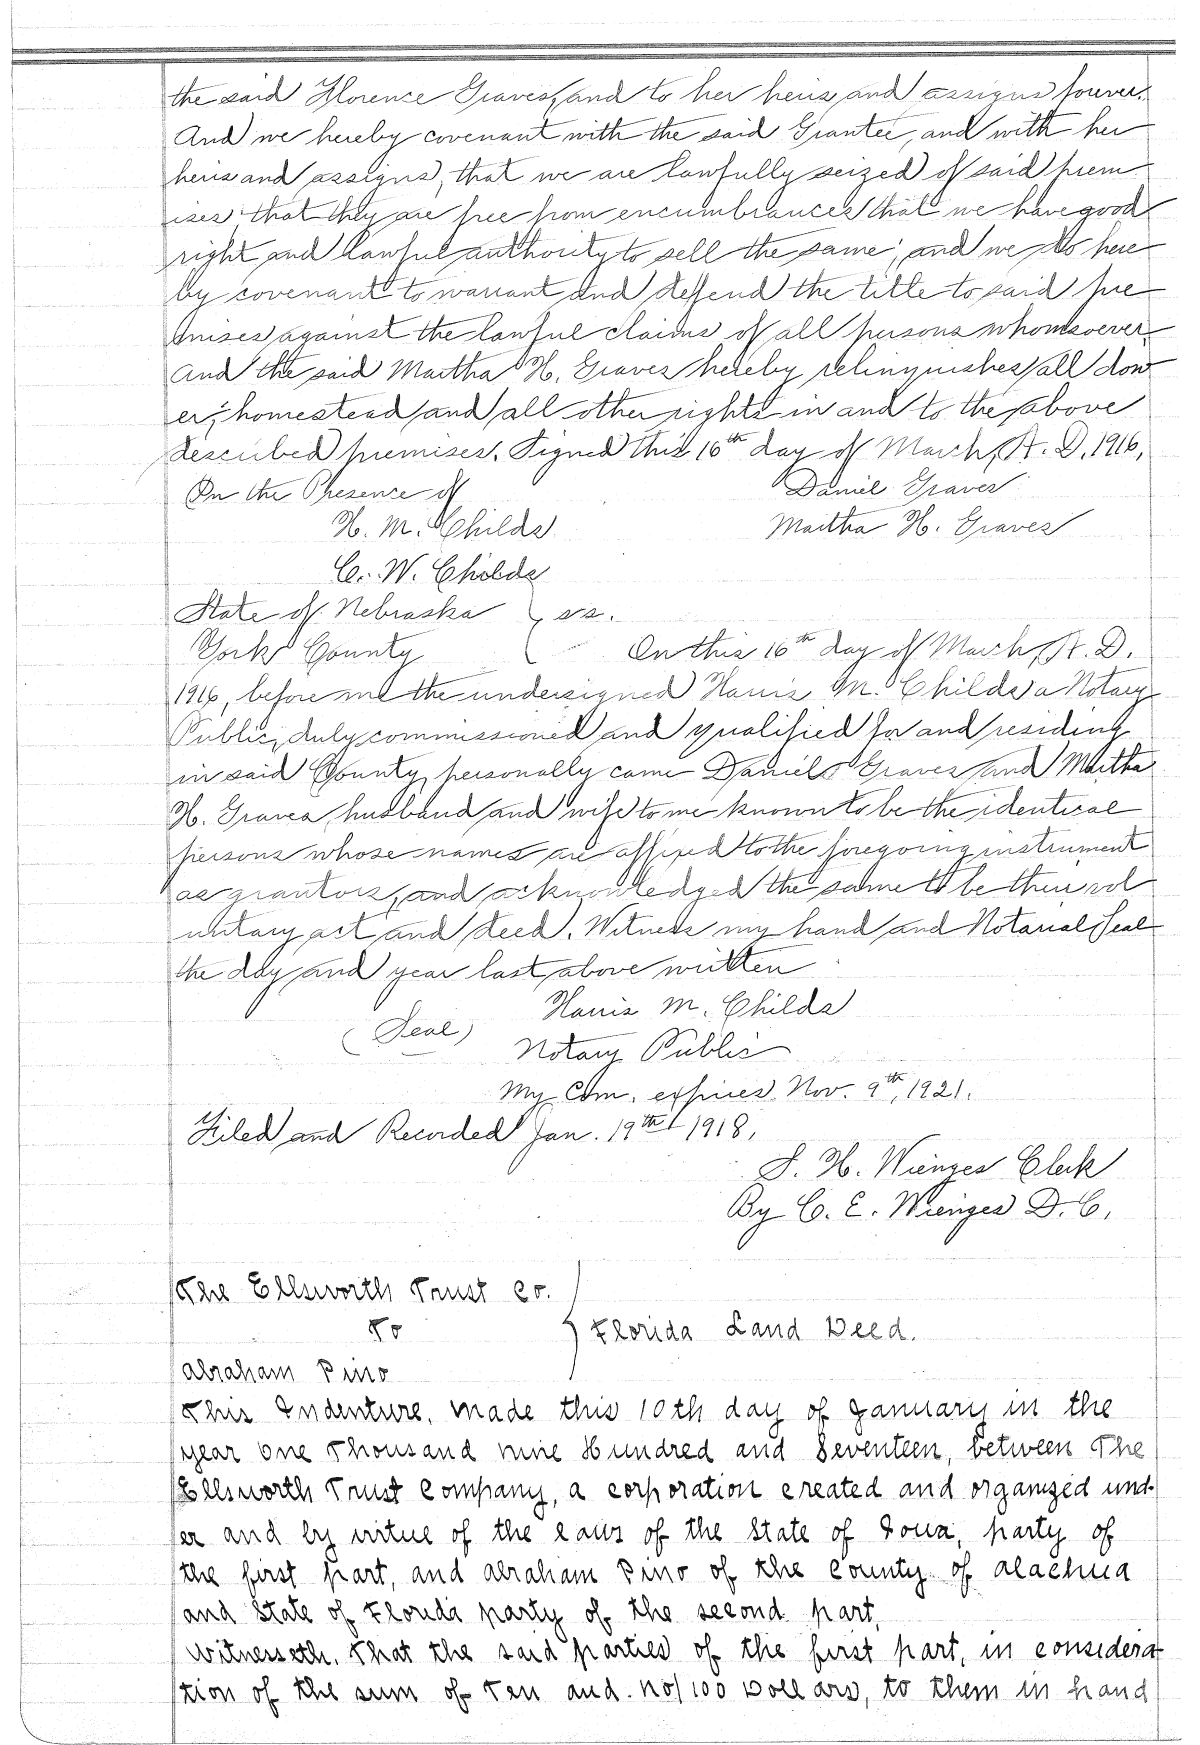 the said Florence Graves, and to her heirs and assigns forever.
And we hereby covenant with the said Grantee, and with her
heirs and assigns, that we are lawfully seized of said prem
ises; that they are free from encumbrances that we have good
right and lawful authority to sell the same; and we do here
by covenant to warrant and defend the title to said pre
mises against the lawful claims of all persons whomsoever.
And the said Martha H. Graves hereby relinquishes all dow
er, homestead and all other rights in and to the above
described premises. Signed this 16th day of March, A. D. 1916,
In the Presence of Daniel Graves
H. M. Childs Martha H. Graves
C. W. Childs
State of Nebraska } ss.
York County On this 16th day of March, A. D.
1916, before me the undersigned Harris M. Childs a Notary
Public, duly commissioned and qualified for and residing
in said County, personally came Daniel Graves and Martha
H. Graves, husband and wife to me known to be the identical
persons whose names are affixed to the foregoing instrument
as grantors, and acknowledged the same to be their vol
untary act and deed. Witness my hand and Notarial Seal
the day and year last above written
Harris M. Childs
(Seal) Notary Public
My Com. expires Nov. 9th, 1921.
Filed and Recorded Jan. 19th 1918,
S. H. Wienges Clerk
By C. E. Wienges D. C.
The Ellsworth Trust Co.
To } Florida Land Deed.
Abraham Pino
This Indenture, made this 10th day of January in the
year One Thousand nine Hundred and Seventeen, between The
Ellsworth Trust Company, a corporation created and organized und-
er and by virtue of the laws of the State of Iowa, party of
the first part, and Abraham Pino of the County of Alachua
and State of Florida party of the second part,
Witnesseth, That the said parties of the first part, in considera-
tion of the sum of Ten and no/100 Dollars, to them in hand